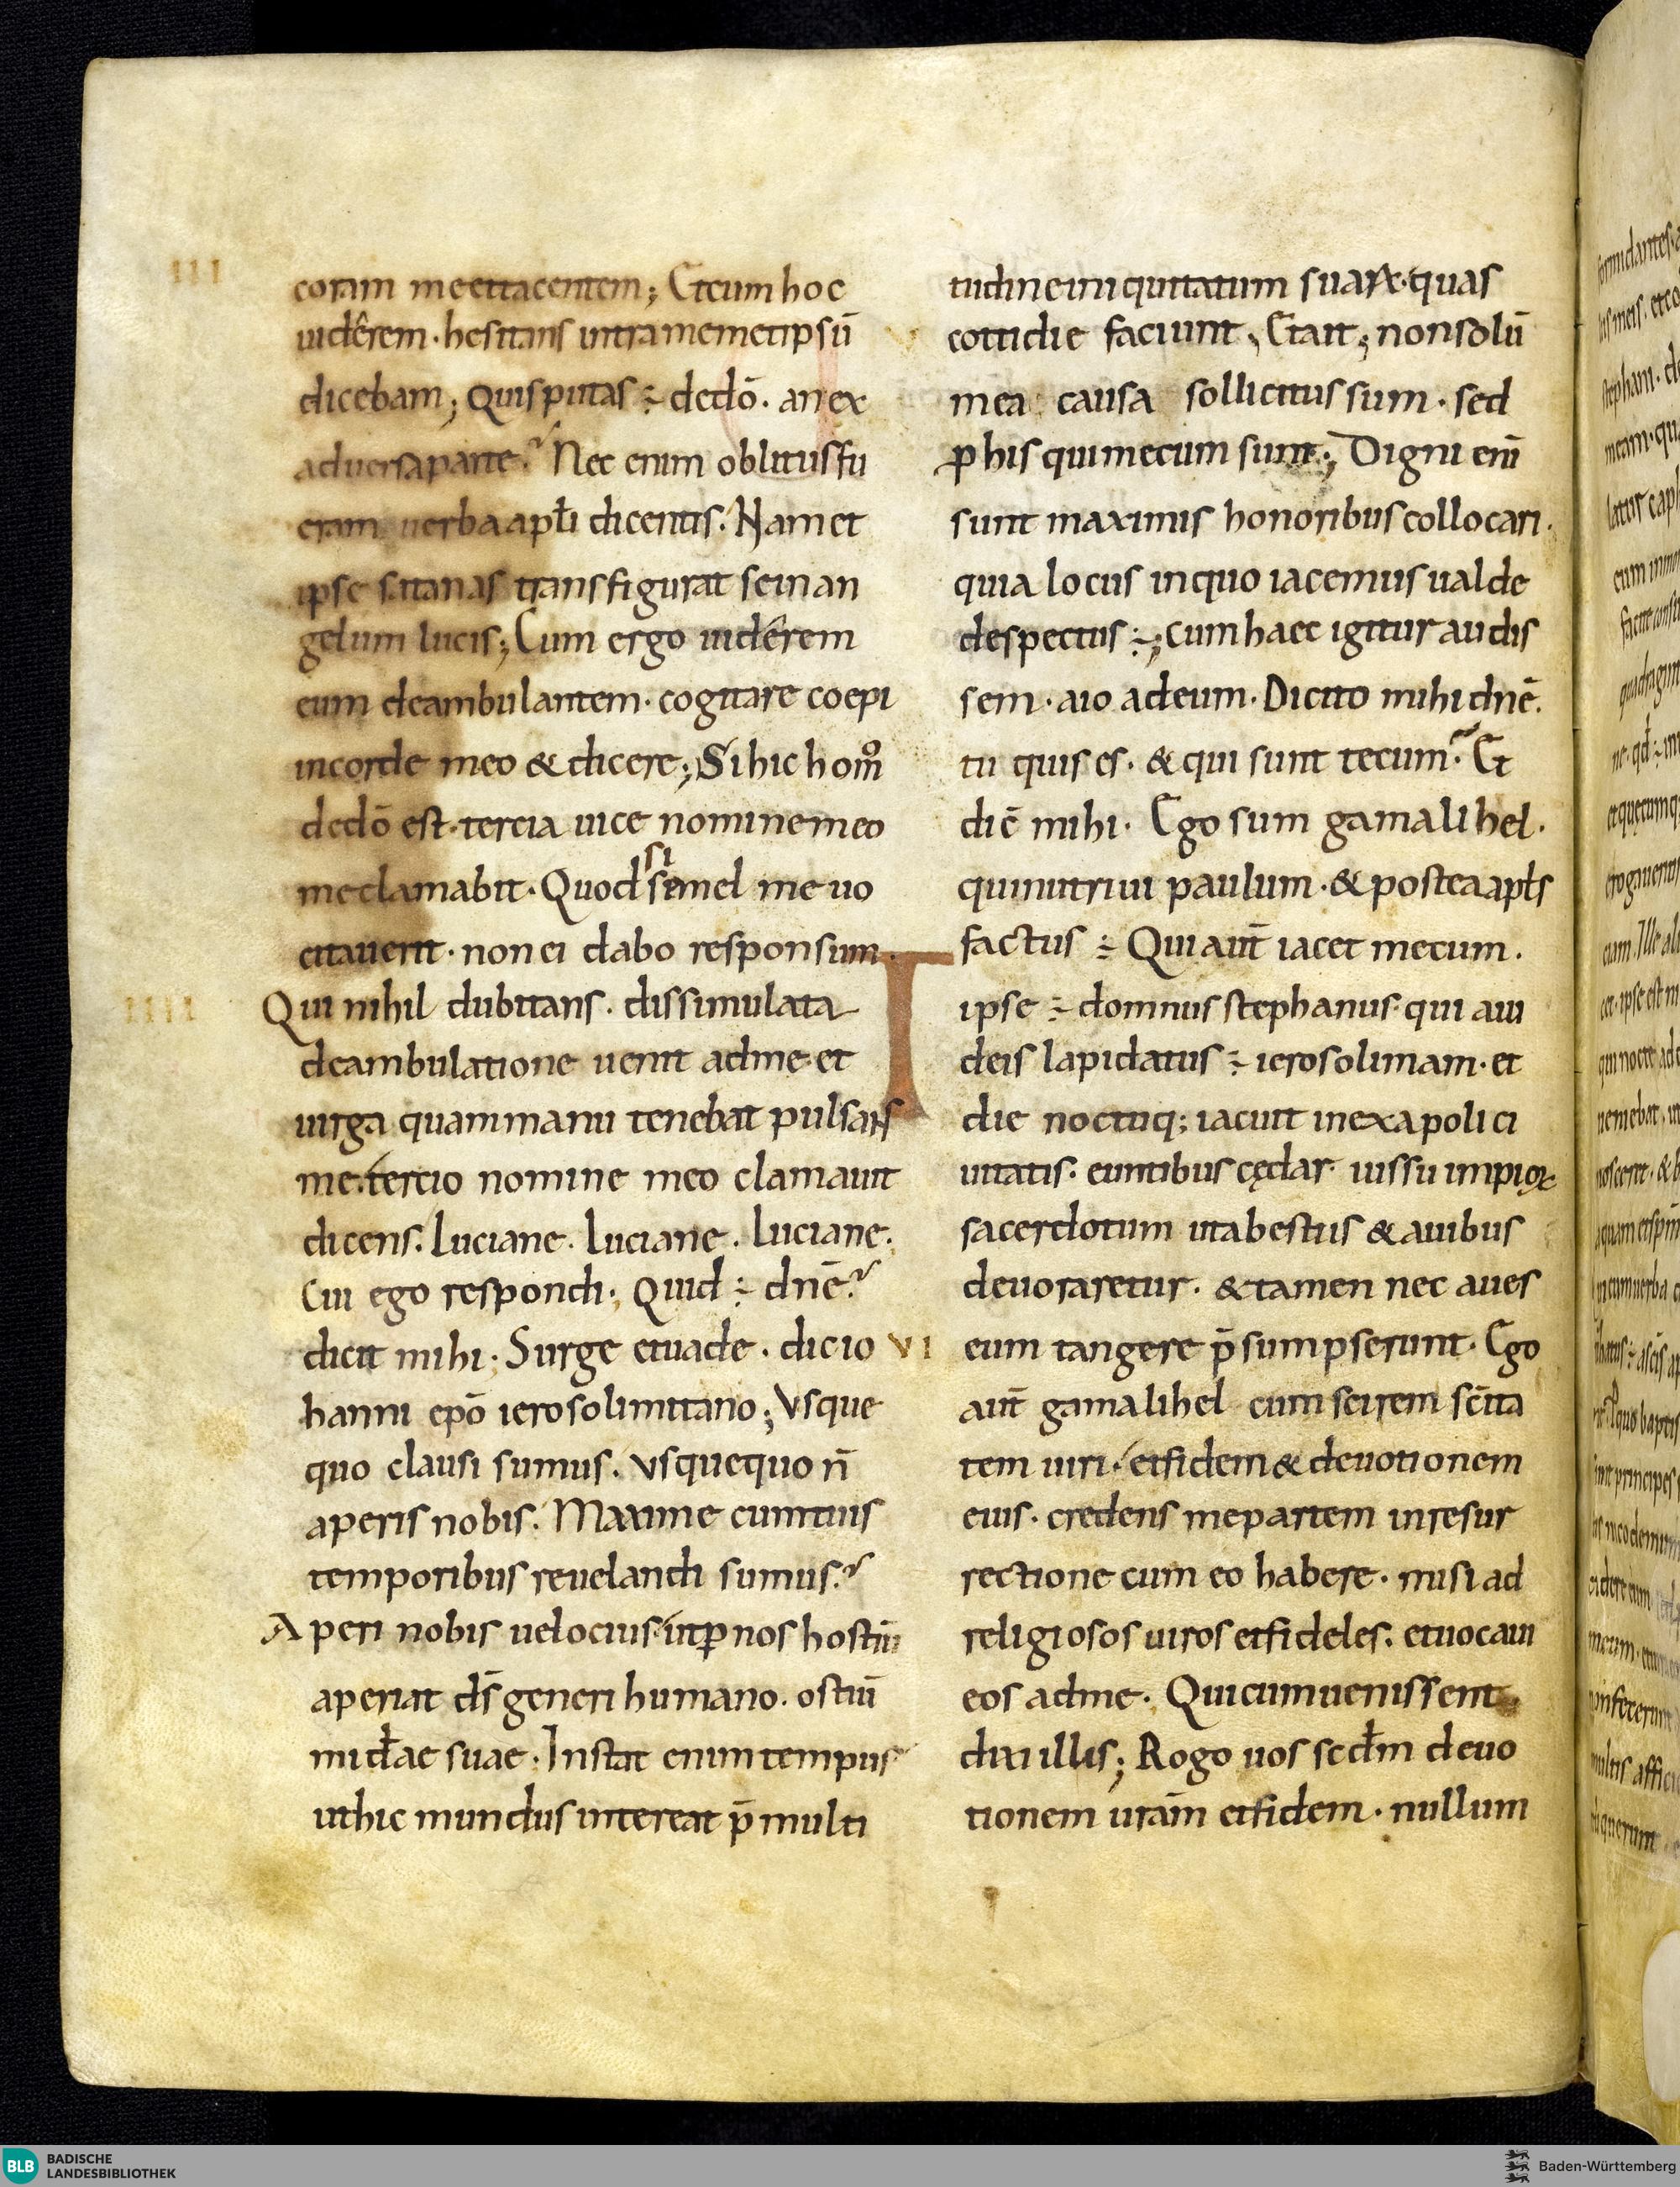 III
coram me et tacentem; Et cum hoc
uidêrem · hesitans intra memetipsū
dicebam; Quis putas ÷ de dō · an ex
aduersa parte? Nec enim oblitus fu
eram uerba apłi dicentis. Nam et
ipse satanas transfigurat se in an
gelum lucis; Cum ergo uidêrem
eum deambulantem · cogitare coepi
in corde meo & dicere; Si hic homo
de dō est · tercia uice nomine meo
me clamabit · Quod si semel me uo
citauerit · non ei dabo responsum.
IIII
Qui nihil dubitans · dissimulata
deambulatione uenit ad me · et
uirga quam manu tenebat pulsans
me. tercio nomine meo clamauit
dicens. Luciane · Luciane · Luciane.
Cui ego respondi; Quid ÷ dnē?
dicit mihi · Surge et uade · dic io
hanni epō ierosolimitano; Vsque
quo clausi sumus. vsquequo n̄
aperis nobis. Maxime cum tuis
temporibus reuelandi sumus?
Aperi nobis uelocius ut ꝑ nos hostiū
aperiat d̄s generi humano · ostiū
mid̄ae suae · Instat enim tempus
ut hic mundus intereat p̄ multi
tudine iniquitatum suaꝝ · quas
cottidie faciunt; Et ait; non solū
mea causa sollicitus sum · sed
ꝓ his qui mecum sunt; Digni enī
sunt maximis honoribus collocari ·
quia locus in quo iacemus ualde
despectus ÷; Cum haec igitur audis
sem · aio ad eum · Dicito mihi dnē.
tu quis es · & qui sunt tecum? Et
dic̄ mihi · Ego sum gamalihel ·
qui nutriui paulum · & postea apłs
factus ÷ Qui aut̄ iacet mecum ·
ipse ÷ domnus stephanus · qui a iu
deis lapidatus ÷ ierosolimam · et
die noctuq; iacuit in exapoli ci
uitatis · euntibus cędar · iussu impioꝝ
sacerdotum ut a bestiis & auibus
deuoraretur · & tamen nec aues
VI
eum tangere p̄sumpserunt · Ego
aut̄ gamalihel cum scirem sc̄ita
tem uiri · et fidem & deuotionem
eius · credens me partem in resur
rectione cum eo habere · misi ad
religiosos uiros et fideles. et uocaui
eos ad me · Qui cum uenissent
dixi illis; Rogo uos sed̄m deuo
tionem urām et fidem · nullum
BLB BADISCHE
LANDESBIBLIOTHEK
Baden-Württemberg